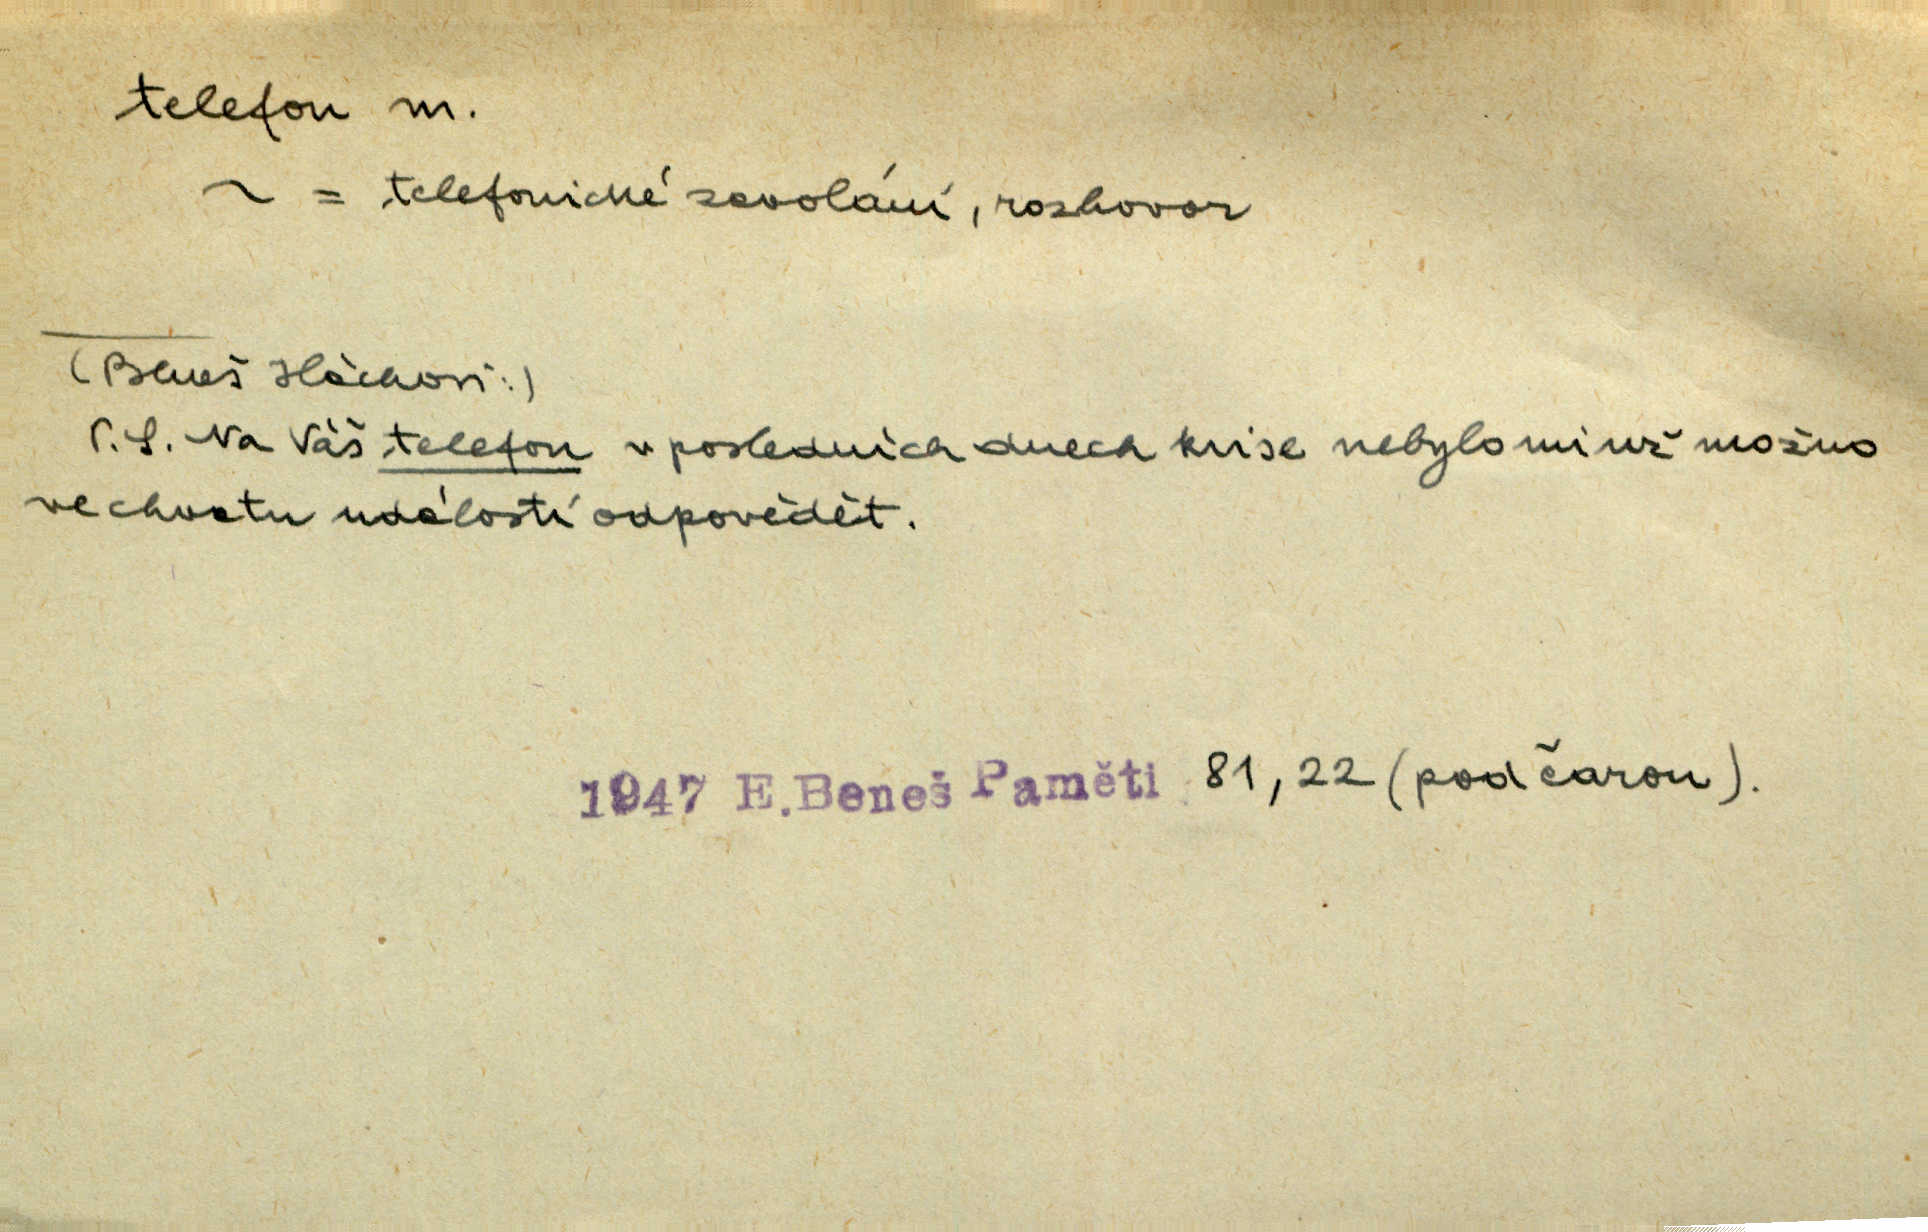 telefon m.
~ = telefonické zavolání, rozhovor
(Beneš Háchovi:)
P.S. Na Váš telefon v posledních dnech krise nebylo mi už možno
ve chvatu událostí odpovědět.
1947 E.Beneš Paměti 81, 22 (pod čarou).